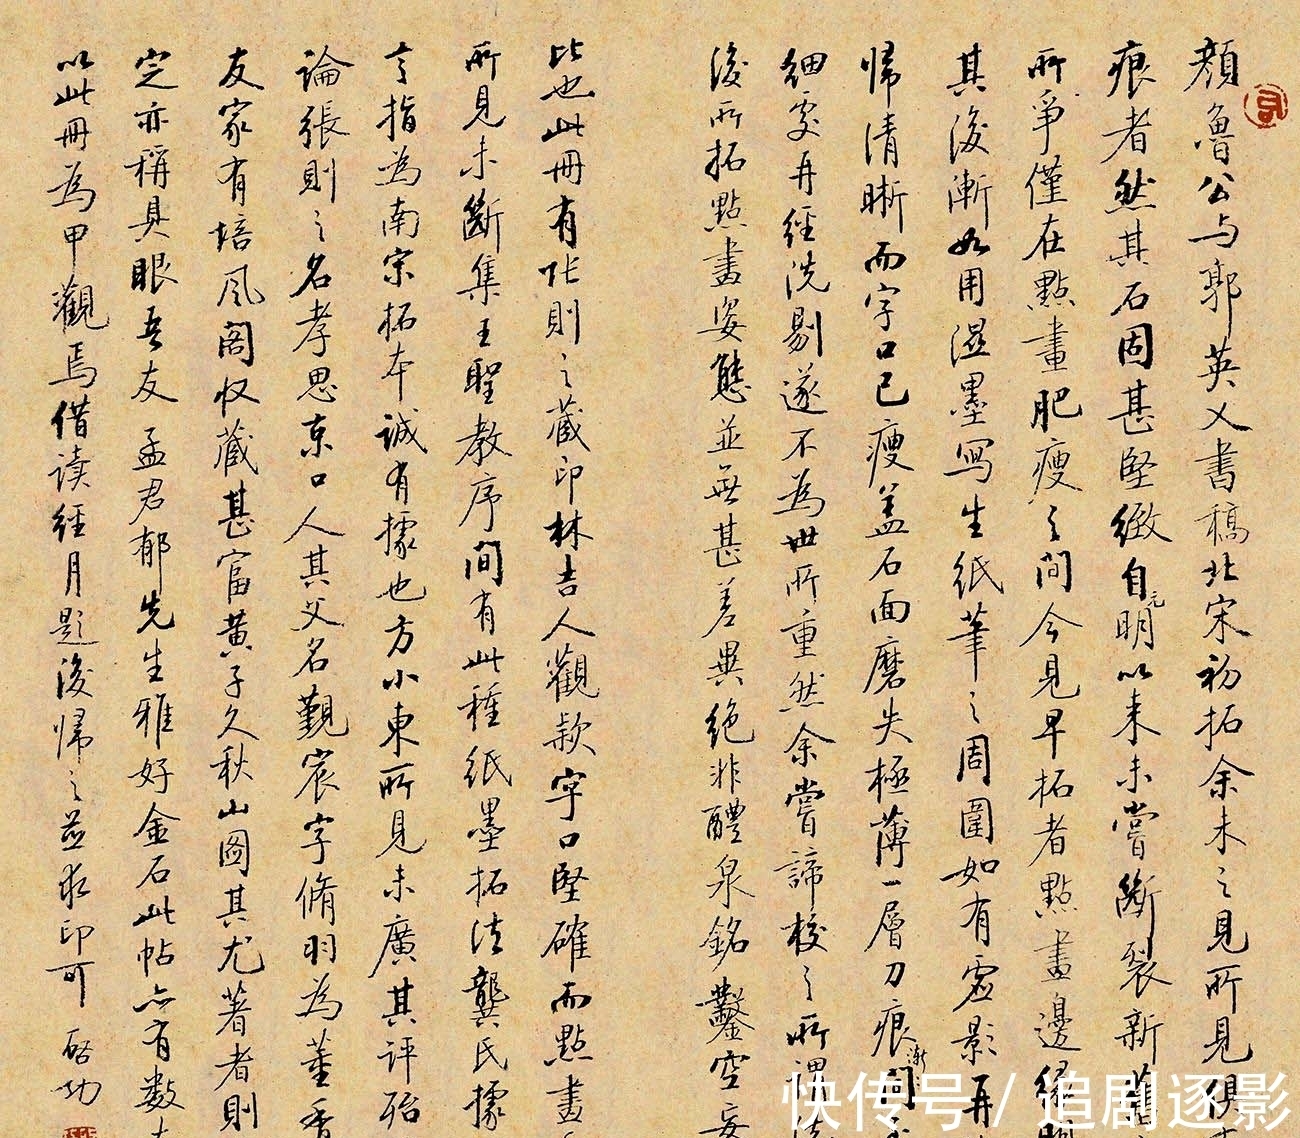 顏魯公与郭英乂書稿北宋初拓余未之見所見俱
痕者然其石固甚堅緻自元明以来未嘗斷裂新舊
所爭僅在點畫肥瘦之間今見早拓者點畫邊緣
其後漸如用濕墨寫生紙筆之周圍如有虛影再
歸清晰而字口已瘦蓋石面磨失極薄一層刀痕漸
細處再經洗剔遂不為世所重然余嘗諦校之所謂
後所拓點畫姿態並無甚差異絕非醴泉銘鑿空妄
比也此冊有張則之藏印林吉人觀款字口堅確而點畫
所見未斷集王聖教序間有此種紙墨拓法龔氏據
言指為南宋拓本誠有據也方小東所見未廣其評殆
論張則之名孝思京口人其父名覲宸字脩羽為董香
友家有培風阁收藏甚富黃子久秋山圖其尤著者則
定亦稱具眼吾友孟君郁先生雅好金石此帖亦有数
以此冊為甲觀焉借读經月題後歸之並求印可 啓功
快传号/追剧逐影